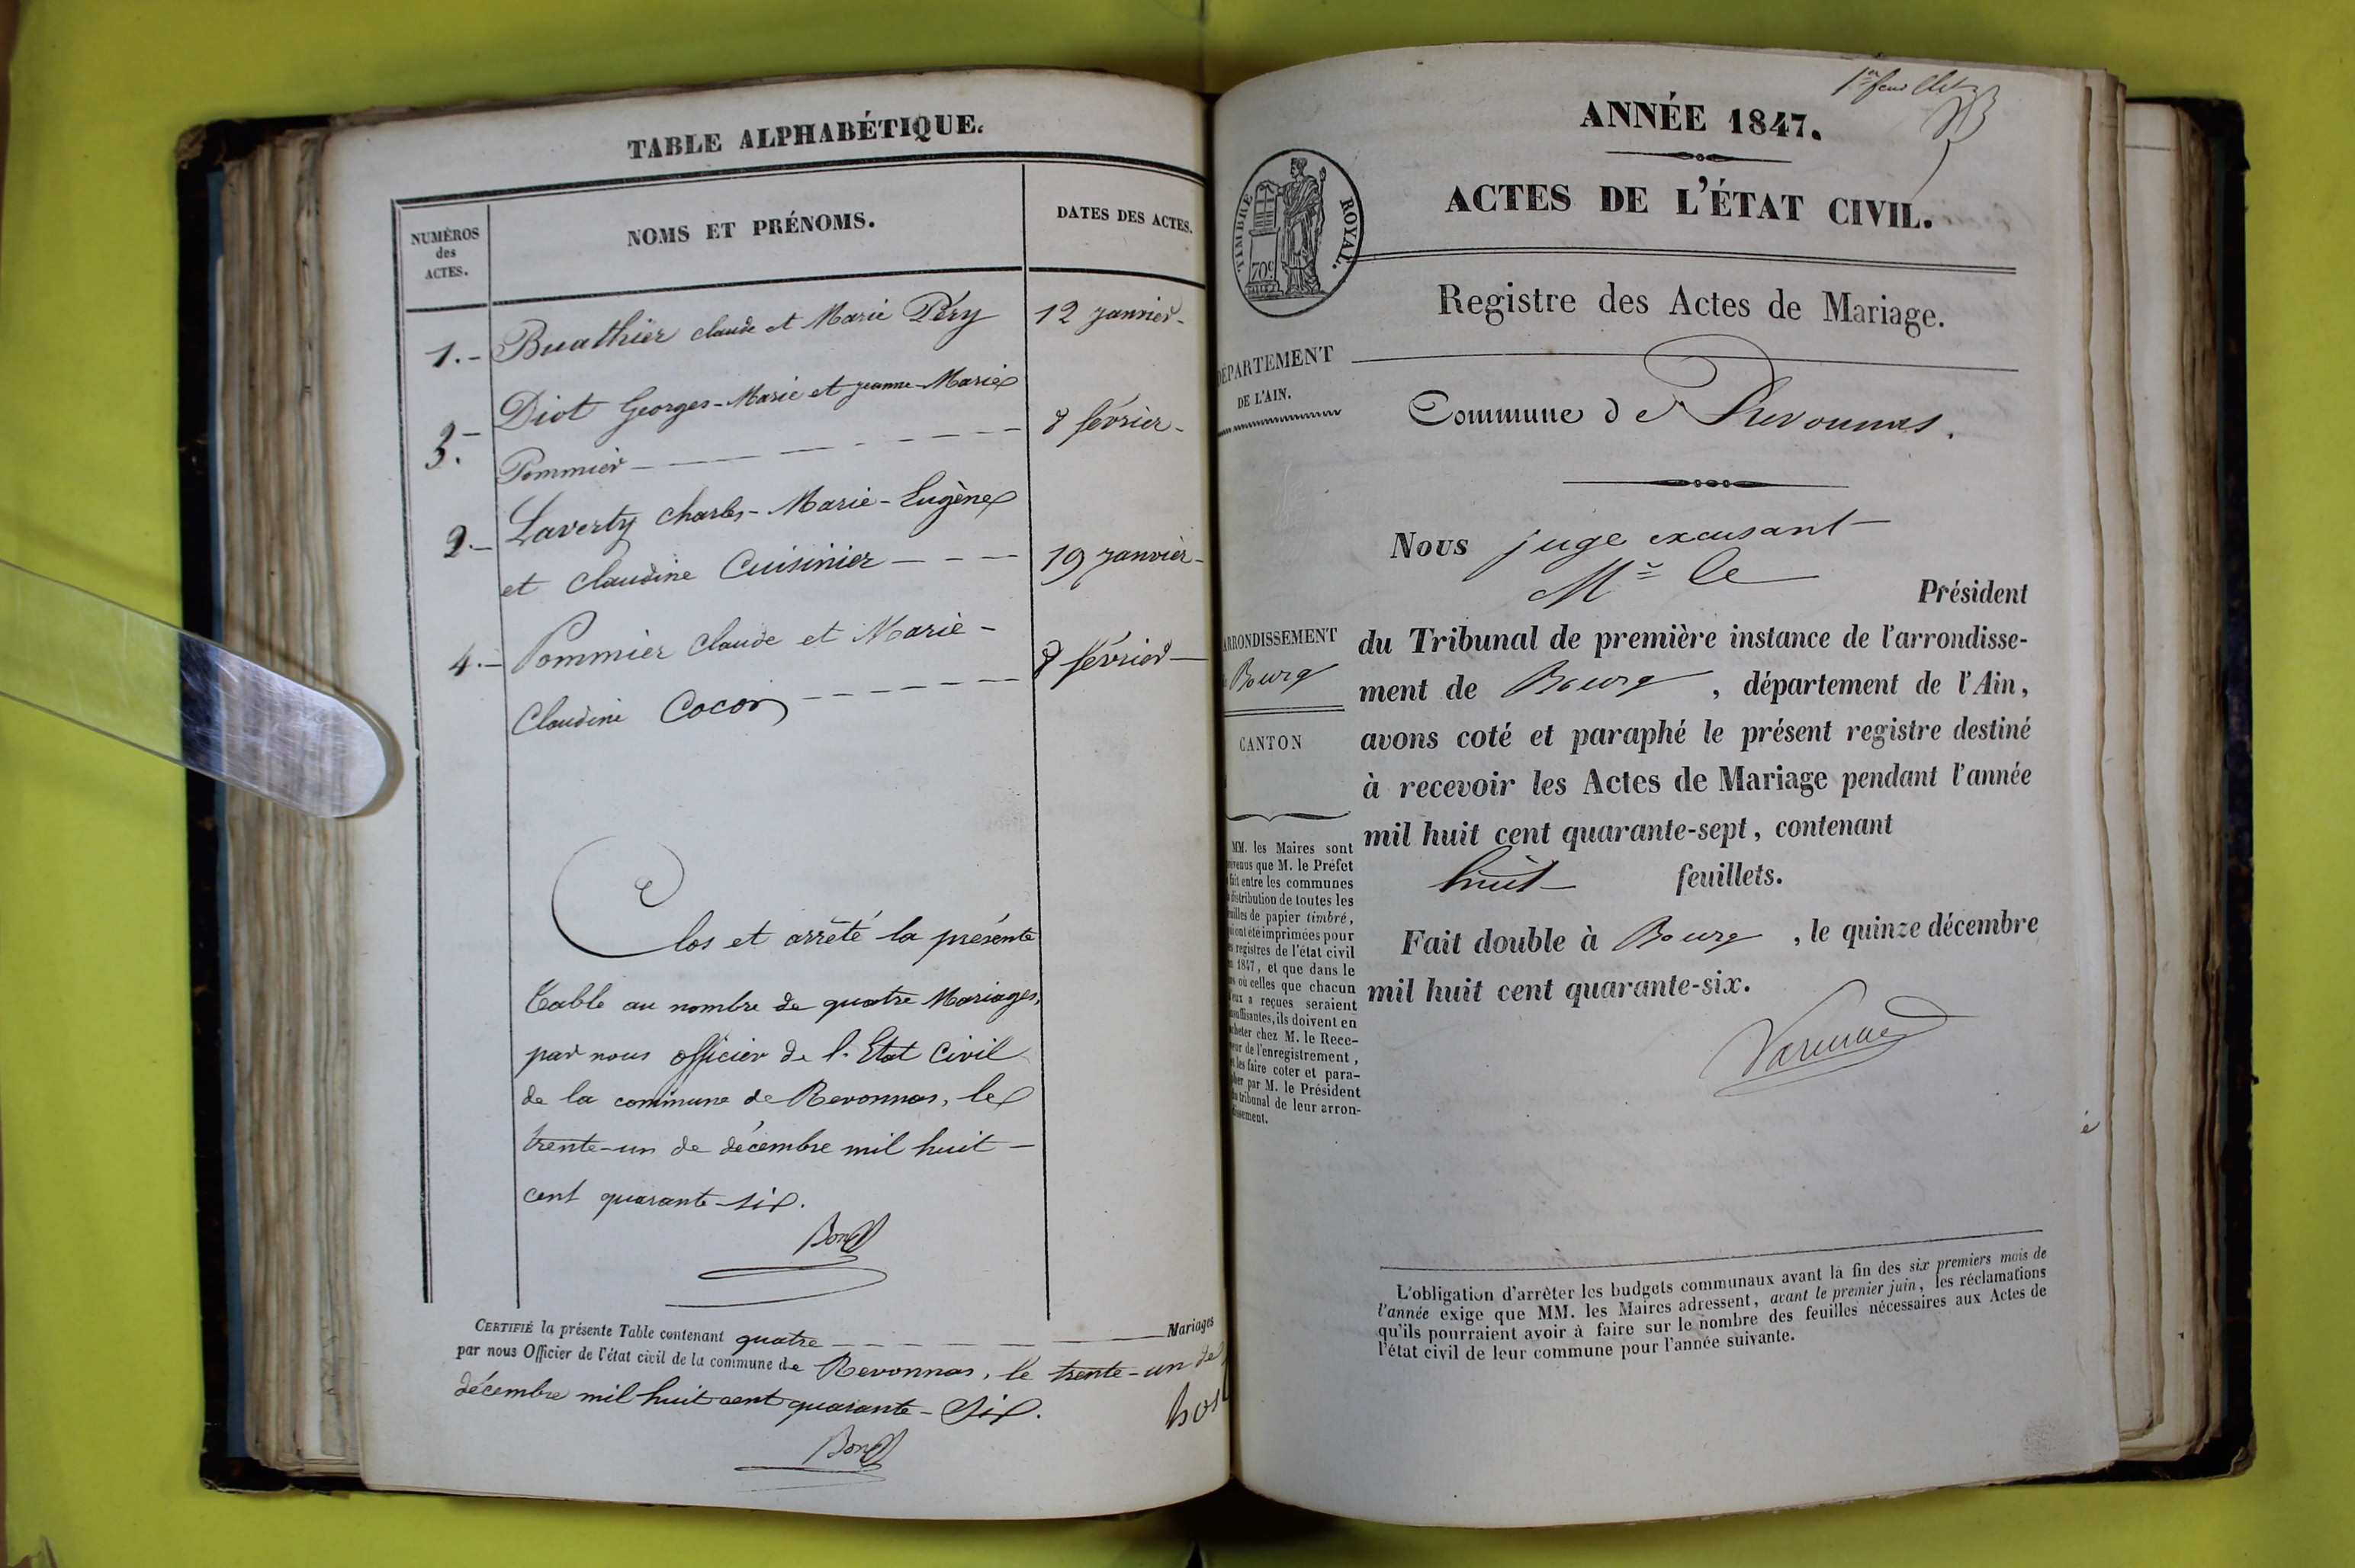 TABLE ALPHABÉTIQUE.
NUMÉROS
des
ACTES.
NOMS ET PRÉNOMS.
DATES DES ACTES.
1.- Buathier claude et Marie Péry 12 janvier-
Diot Georges-Marie et jeanne-Marie
3.- Pommier - - - - - - - 8 février-
2.- Laverty charles-Marie-Eugène
et claudine Cuisinier - - - 19 janvier-
4.- Pommier claude et Marie-
Claudine Cocon - - - - - - - 8 février-
Clos et arrêté la présente
table au nombre de quatre Mariages,
par nous officier de l'Etat Civil
de la commune de Revonnas, le
trente-un de décembre mil huit-
cent quarante-six.
CERTIFIÉ la présente Table contenant quatre - - - - - Mariages
par nous Officier de l'état civil de la commune de Revonnas, le trente-un de
décembre mil huit cent quarante-six.
1er feuillet
ANNÉE 1847.
ACTES DE L'ÉTAT CIVIL.
TIMBRE ROYAL.
70c
Registre des Actes de Mariage.
DÉPARTEMENT
DE L'AIN.
Commune de Revonnas.
Nous juge excusant
Mr le
Président
ARRONDISSEMENT
Bourg
CANTON
du Tribunal de première instance de l'arrondisse-
ment de Bourg, département de l'Ain,
avons coté et paraphé le présent registre destiné
à recevoir les Actes de Mariage pendant l'année
mil huit cent quarante-sept, contenant
huit feuillets.
Fait double à Bourg, le quinze décembre
mil huit cent quarante-six.
MM. les Maires sont
que M. le Préfet
fait entre les communes
distribution de toutes les
de papier timbré,
ont été imprimées pour
registres de l'état civil
1847, et que dans le
où celles que chacun
a reçues seraient
ils doivent en
chez M. le Rece-
de l'enregistrement,
les faire coter et para-
par M. le Président
tribunal de leur arron-
L'obligation d'arrêter les budgets communaux avant la fin des six premiers mois de
l'année exige que MM. les Maires adressent, avant le premier juin, les réclamations
qu'ils pourraient avoir à faire sur le nombre des feuilles nécessaires aux Actes de
l'état civil de leur commune pour l'année suivante.